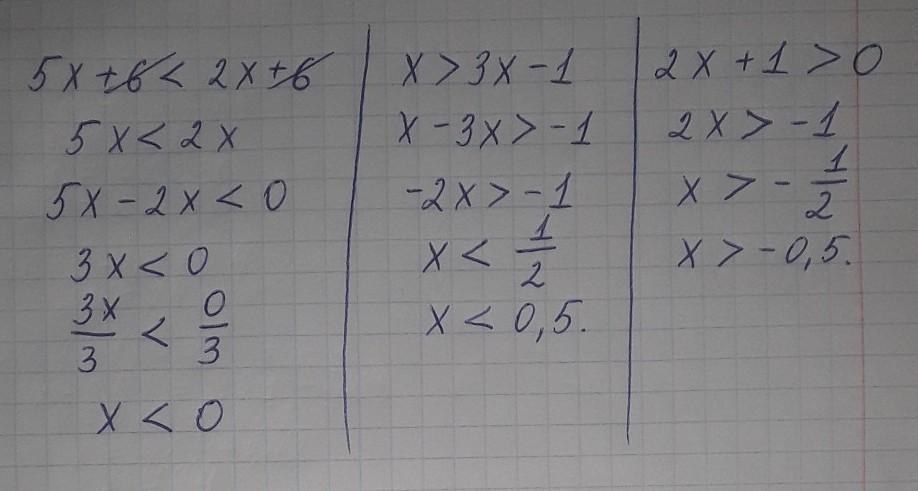 5x+6 < 2x+6
5x < 2x
5x - 2x < 0
3x < 0
3x/3 < 0/3
x < 0
x > 3x - 1
x - 3x > -1
-2x > -1
x < 1/2
x < 0,5.
2x + 1 > 0
2x > -1
x > - 1/2
x > -0,5.